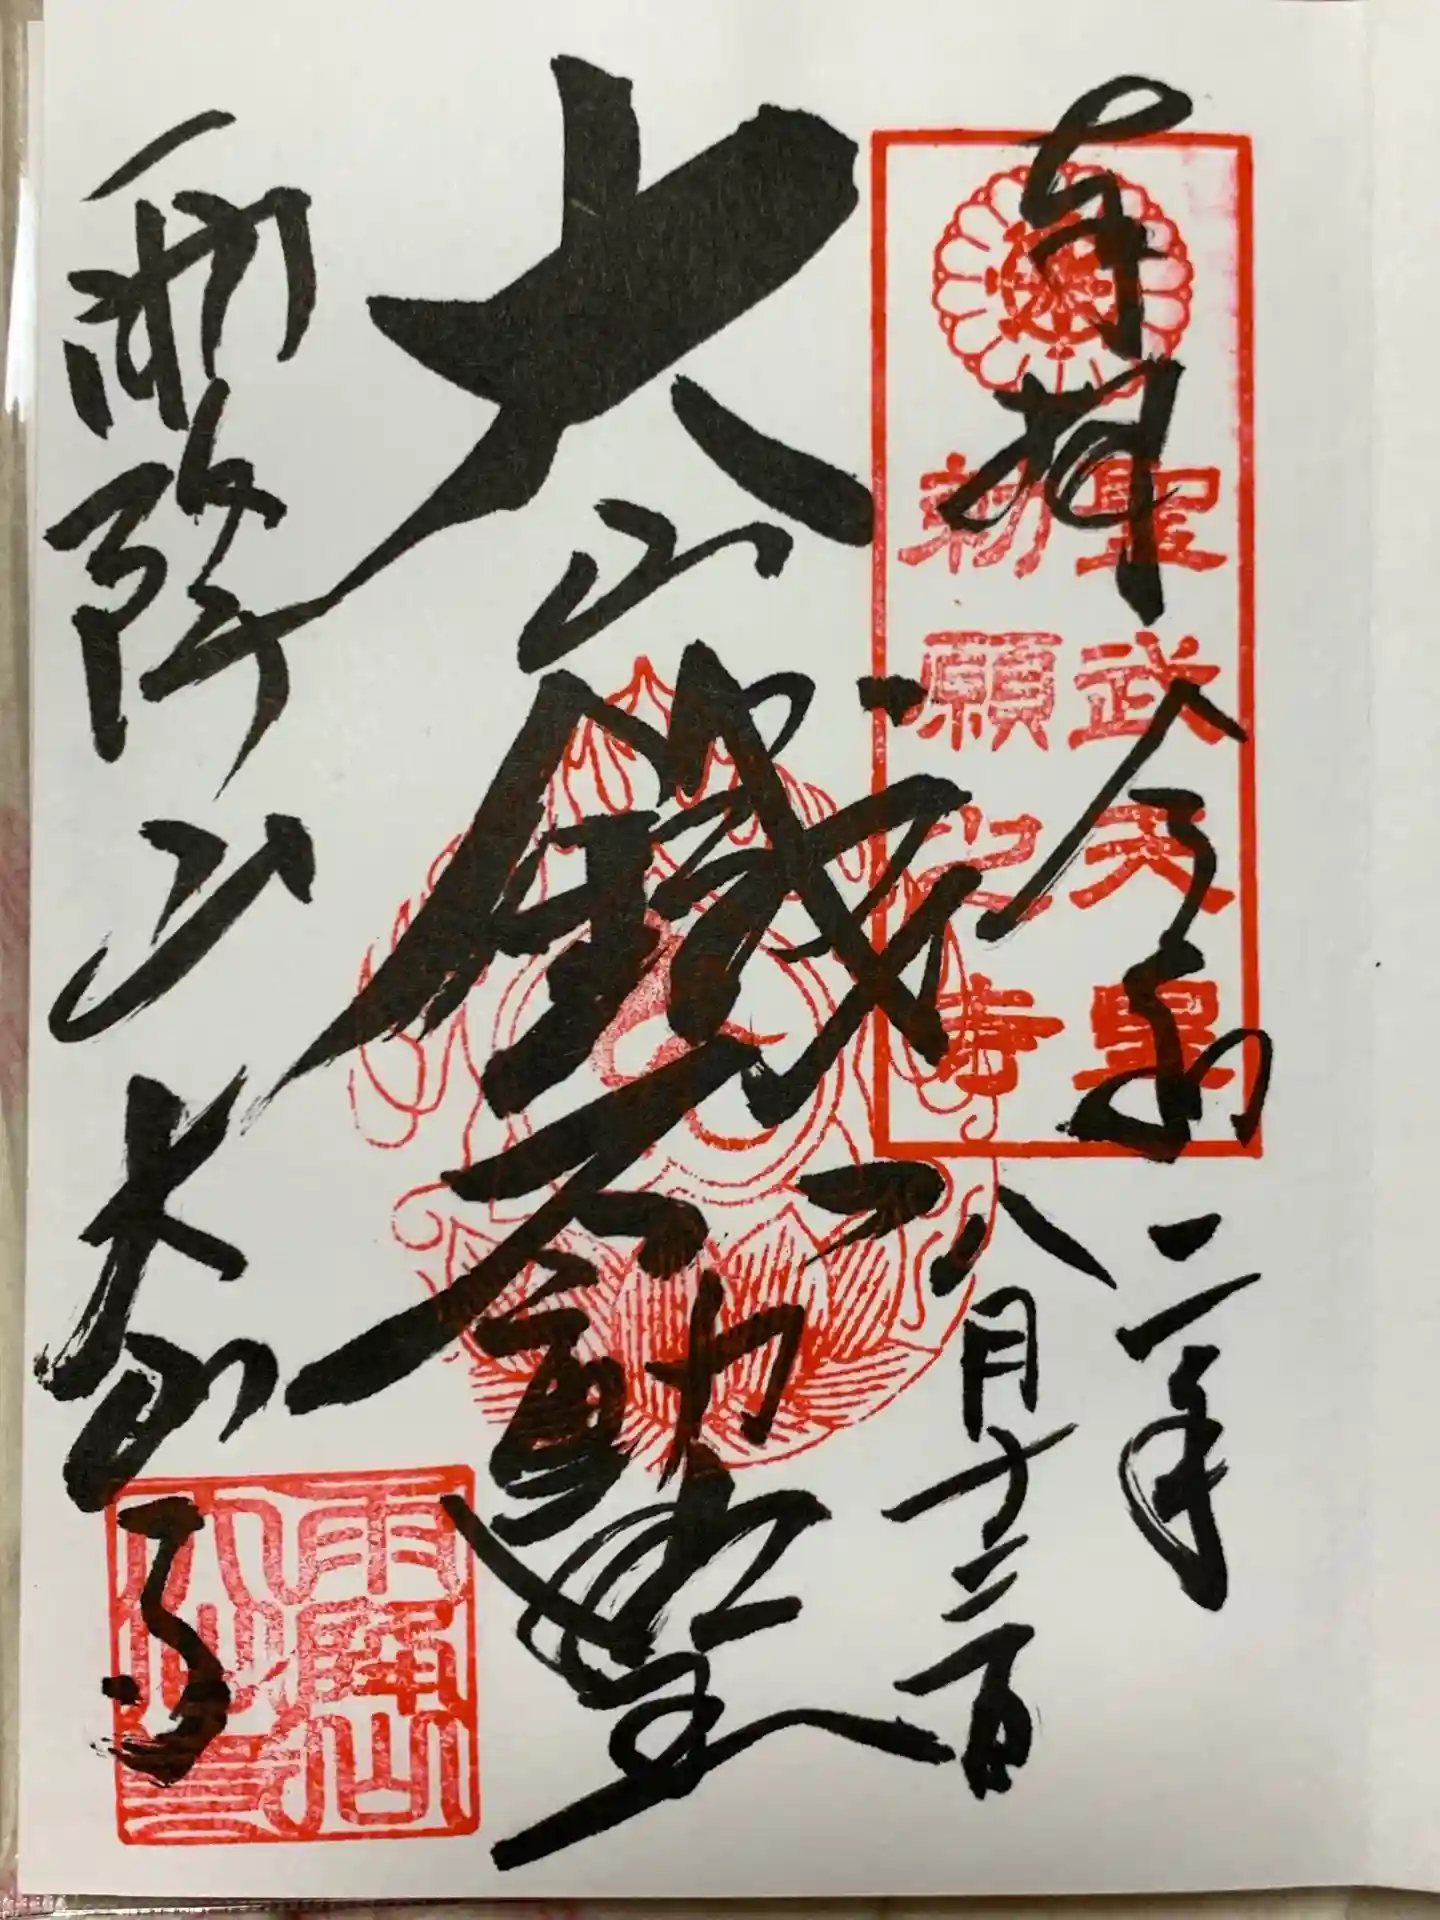 奉拝
令和二年
八月十二日
聖武天皇
勅願之寺
大山鐵不動尊
雨降山大山寺
雨降山